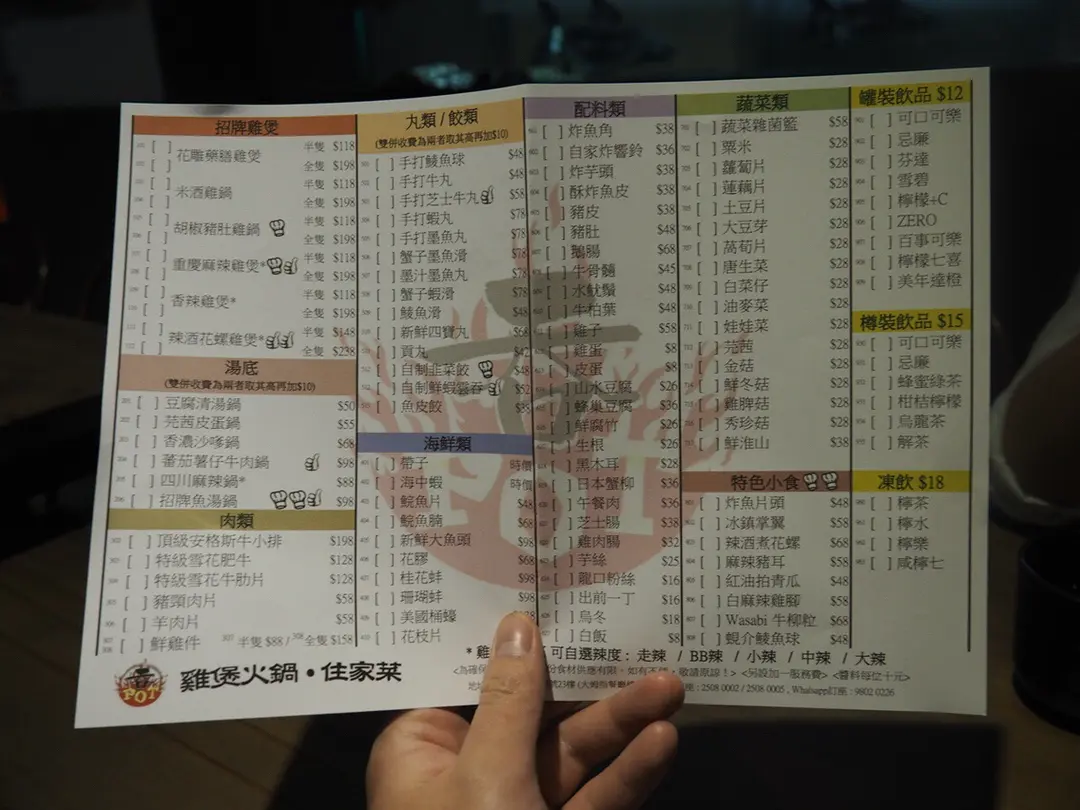 招牌雞煲
花雕藥膳雞煲 半隻 $118
全隻 $198
米酒雞鍋 半隻 $118
全隻 $198
胡椒豬肚雞鍋 半隻 $118
全隻 $198
重慶麻辣雞煲* 半隻 $118
全隻 $198
香辣雞煲* 半隻 $118
全隻 $198
辣酒花螺雞煲* 半隻 $148
全隻 $238
湯底
(雙併收費為兩者取其高再加$10)
[ ] 豆腐清湯鍋 $50
[ ] 芫茜皮蛋鍋 $55
[ ] 香濃沙嗲鍋 $68
[ ] 蕃茄薯仔牛肉鍋 $98
[ ] 四川麻辣鍋* $88
[ ] 招牌魚湯鍋 $98
肉類
[ ] 頂級安格斯牛小排 $198
[ ] 特級雪花肥牛 $128
[ ] 特級雪花牛肋片 $128
[ ] 豬頸肉片 $58
[ ] 羊肉片 $58
[ ] 鮮雞件 半隻 $88 / 全隻 $158
丸類 / 餃類
(雙併收費為兩者取其高再加$10)
[ ] 手打鯪魚球 $48
[ ] 手打牛丸 $48
[ ] 手打芝士牛丸 $58
[ ] 手打蝦丸 $78
[ ] 手打墨魚丸 $78
[ ] 蟹子墨魚滑 $78
[ ] 墨汁墨魚丸 $78
[ ] 蟹子蝦滑 $78
[ ] 鯪魚滑 $48
[ ] 新鮮四寶丸 $68
[ ] 貢丸 $42
[ ] 自制韭菜餃 $48
[ ] 自制鮮蝦雲吞 $52
[ ] 魚皮餃 $38
海鮮類
[ ] 帶子 時價
[ ] 海中蝦 時價
[ ] 鯇魚片 $48
[ ] 鯇魚腩 $68
[ ] 新鮮大魚頭 $98
[ ] 花膠 $68
[ ] 桂花蚌 $98
[ ] 珊瑚蚌 $98
[ ] 美國桶蠔
[ ] 花枝片
配料類
[ ] 炸魚角 $38
[ ] 自家炸響鈴 $36
[ ] 炸芋頭 $38
[ ] 酥炸魚皮 $38
[ ] 豬皮 $38
[ ] 豬肚 $48
[ ] 鵝腸 $68
[ ] 牛骨髓 $45
[ ] 水魷鬚 $48
[ ] 牛柏葉 $48
[ ] 雞子 $58
[ ] 雞蛋 $8
[ ] 皮蛋 $8
[ ] 山水豆腐 $26
[ ] 蜂巢豆腐 $36
[ ] 鮮腐竹 $26
[ ] 生根 $26
[ ] 黑木耳 $28
[ ] 日本蟹柳 $36
[ ] 午餐肉 $36
[ ] 芝士腸 $38
[ ] 雞肉腸 $32
[ ] 芋絲 $25
[ ] 龍口粉絲 $16
[ ] 出前一丁 $16
[ ] 烏冬 $18
[ ] 白飯 $8
蔬菜類
[ ] 蔬菜雜菌籃 $58
[ ] 粟米 $28
[ ] 蘿蔔片 $28
[ ] 蓮藕片 $28
[ ] 土豆片 $28
[ ] 大豆芽 $28
[ ] 萵筍片 $28
[ ] 唐生菜 $28
[ ] 白菜仔 $28
[ ] 油麥菜 $28
[ ] 娃娃菜 $28
[ ] 芫茜 $28
[ ] 金菇 $28
[ ] 鮮冬菇 $28
[ ] 雞脾菇 $28
[ ] 秀珍菇 $28
[ ] 鮮淮山 $38
特色小食
[ ] 炸魚片頭 $48
[ ] 冰鎮掌翼 $58
[ ] 辣酒煮花螺 $68
[ ] 麻辣豬耳 $58
[ ] 紅油拍青瓜 $48
[ ] 白麻辣雞腳 $58
[ ] Wasabi 牛柳粒 $68
[ ] 蜆介鯪魚球 $48
罐裝飲品 $12
[ ] 可口可樂
[ ] 忌廉
[ ] 芬達
[ ] 雪碧
[ ] 檸檬+C
[ ] ZERO
[ ] 百事可樂
[ ] 檸檬七喜
[ ] 美年達橙
樽裝飲品 $15
[ ] 可口可樂
[ ] 忌廉
[ ] 蜂蜜綠茶
[ ] 柑桔檸檬
[ ] 烏龍茶
[ ] 解茶
凍飲 $18
[ ] 檸茶
[ ] 檸水
[ ] 檸樂
[ ] 咸檸七
* 雞 可自選辣度 : 走辣 / BB辣 / 小辣 / 中辣 / 大辣
POT 雞煲火鍋・住家菜
<為確保 份食材供應有限。如有不 敬請原諒！> <另設加一服務費> <醬料每位十元>
地址 號23樓 座 : 2508 0002 / 2508 0005 , Whatsapp訂座 : 9802 0226